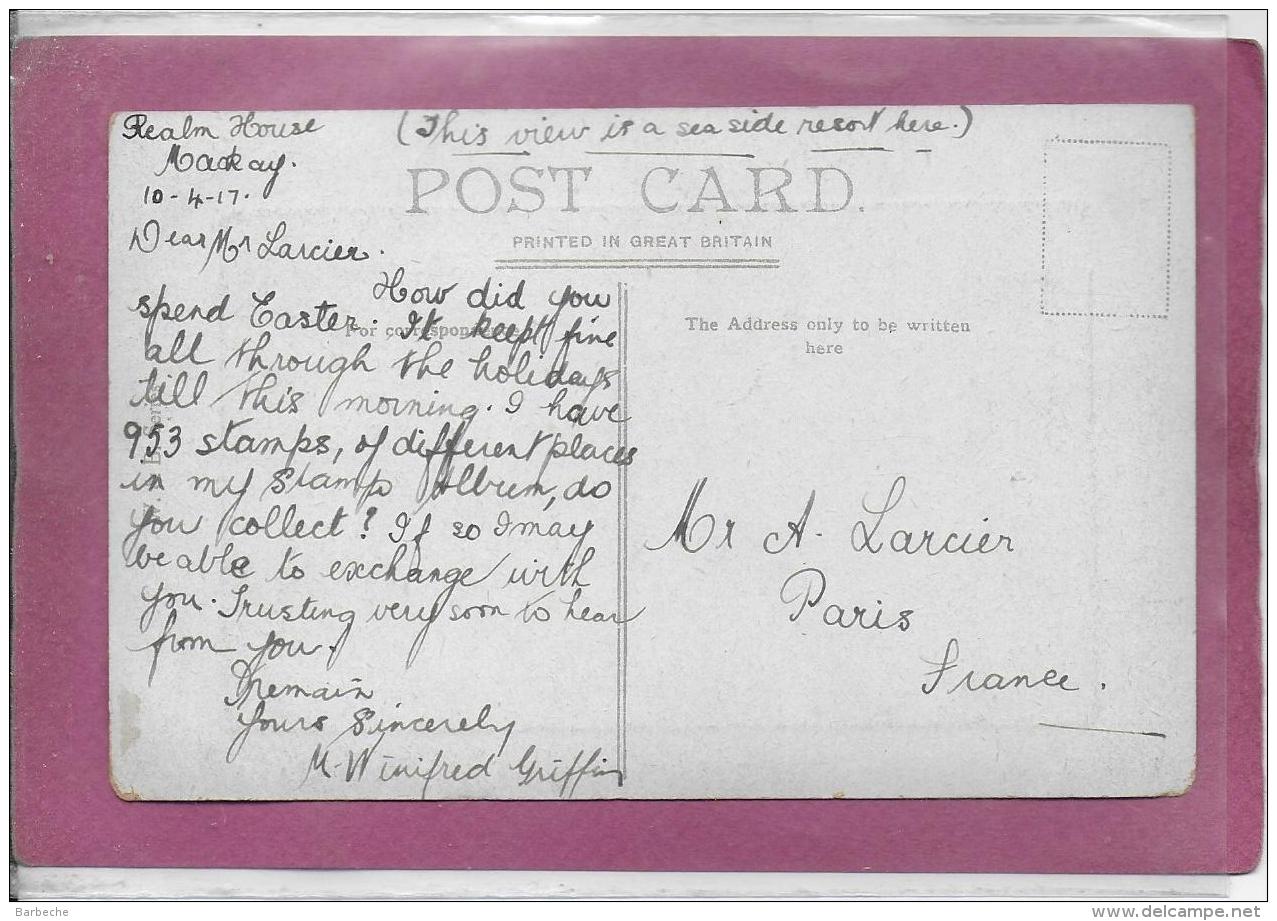 Realm House
Mackay.
10-4-17.
(This view is a sea side resort here.)
POST CARD.
PRINTED IN GREAT BRITAIN
Dear Mr Larcier.
How did you
spend Easter. It keept fine
all through the holidays
till this morning. I have
953 stamps, of different places
in my Stamp Album, do
you collect? If so I may
be able to exchange with
you. Trusting very soon to hear
from you.
I remain
Yours Sincerely
M. Winifred Griffin
For correspon
The Address only to be written
here
Mr A. Larcier
Paris
France.
Barbeche
delcampe.net